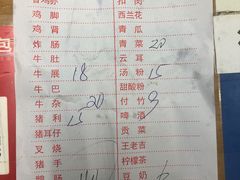 扣肉
鸡脚 西兰花
鸡肾 青瓜
炸肠 青菜 20
牛肚 云耳
牛展 18 汤粉 15
牛巴 甜酸粉
牛杂 20 付竹 9
猪利 15 啤酒
猪耳仔 贡菜
叉烧 王老吉
猪手 柠檬茶
豆奶